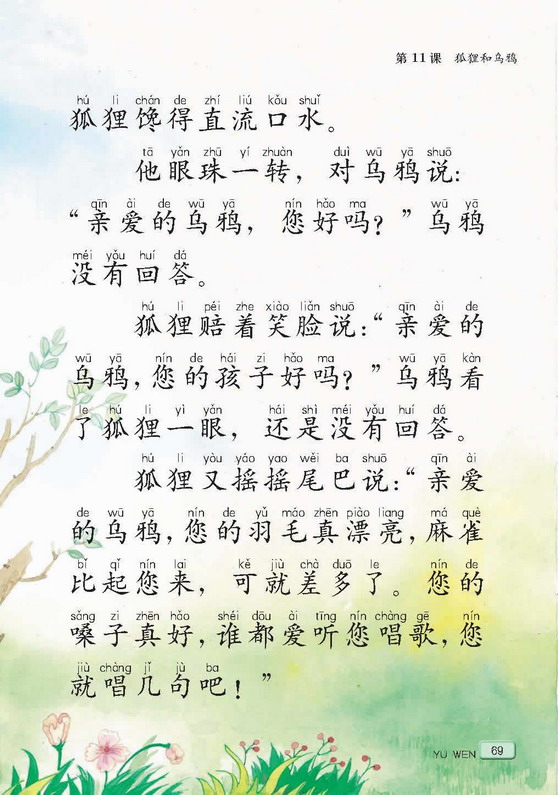 第11课 狐狸和乌鸦
hú li chán de zhí liú kǒu shuǐ
狐狸馋得直流口水。
tā yǎn zhū yí zhuàn duì wū yā shuō
他眼珠一转，对乌鸦说：
qīn ài de wū yā nín hǎo ma wū yā
“亲爱的乌鸦，您好吗？”乌鸦
méi yǒu huí dá
没有回答。
hú li péi zhe xiào liǎn shuō qīn ài de
狐狸赔着笑脸说：“亲爱的
wū yā nín de hái zi hǎo ma wū yā kàn
乌鸦，您的孩子好吗？”乌鸦看
le hú li yì yǎn hái shì méi yǒu huí dá
了狐狸一眼，还是没有回答。
hú li yòu yáo yao wěi ba shuō qīn ài
狐狸又摇摇尾巴说：“亲爱
de wū yā nín de yǔ máo zhēn piào liang má què
的乌鸦，您的羽毛真漂亮，麻雀
bǐ qǐ nín lai kě jiù chà duō le nín de
比起您来，可就差多了。您的
sǎng zi zhēn hǎo shéi dōu ài tīng nín chàng gē nín
嗓子真好，谁都爱听您唱歌，您
jiù chàng jǐ jù ba
就唱几句吧！”
YU WEN 69